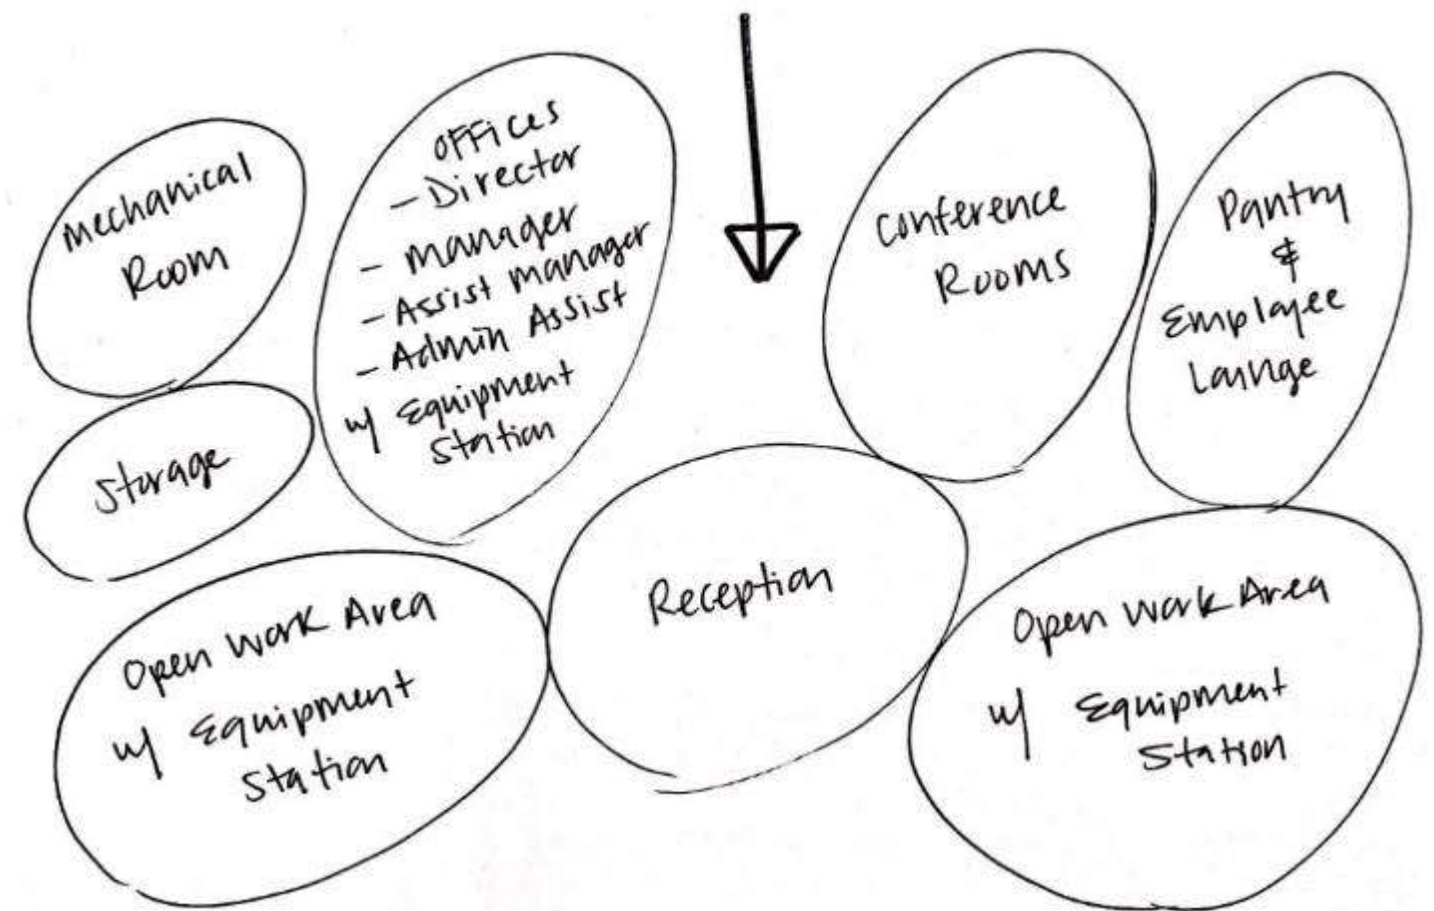 Mechanical
Room
OFFices
- Director
- Manager
- Assist Manager
- Admin Assist
w/ Equipment
Station
Conference
Rooms
Pantry
&
Employee
Lounge
Storage
Reception
Open Work Area
w/ Equipment
Station
Open Work Area
w/ Equipment
Station